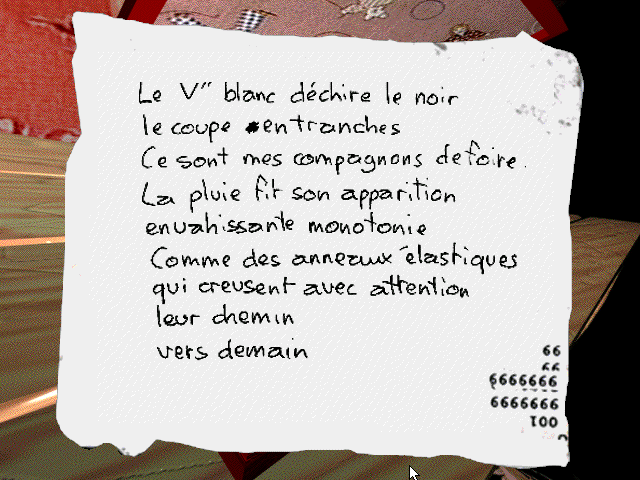 Le V" blanc déchire le noir
le coupe en tranches
Ce sont mes compagnons de foire.
La pluie fit son apparition
envahissante monotonie
Comme des anneaux élastiques
qui creusent avec attention
leur chemin
vers demain
66
6666666
6666666
001